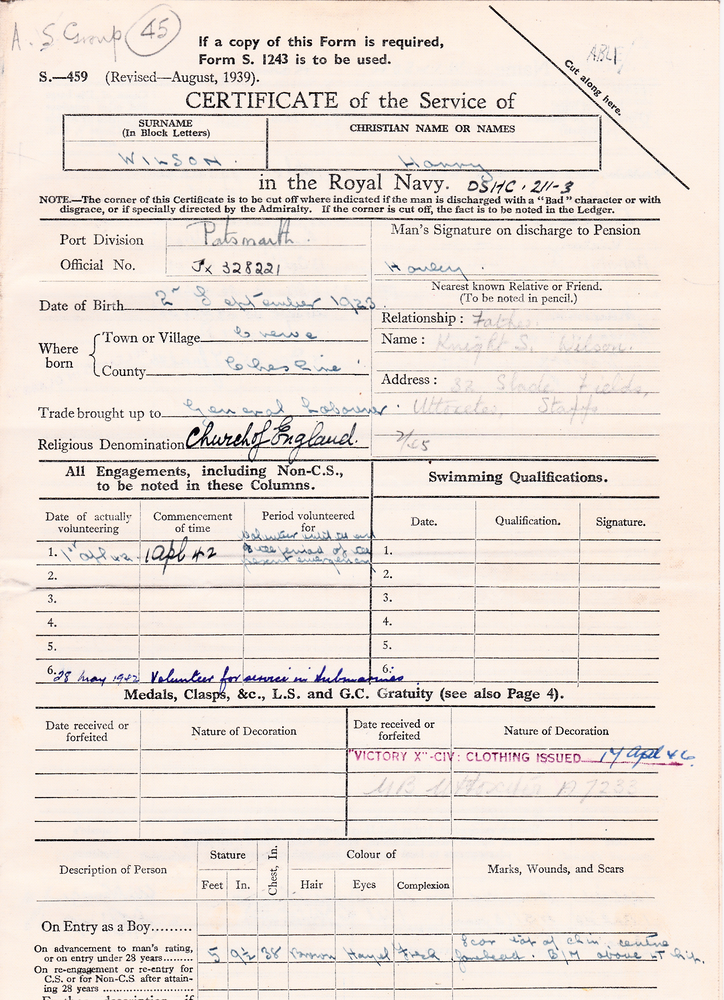 A. S. Group 45
If a copy of this Form is required,
Form S. 1243 is to be used.
S.—459 (Revised—August, 1939).
Cut along here.
CERTIFICATE of the Service of
SURNAME
(In Block Letters)
CHRISTIAN NAME OR NAMES
WILSON. Harry
in the Royal Navy. DSHC. 211-3
NOTE.—The corner of this Certificate is to be cut off where indicated if the man is discharged with a "Bad" character or with
disgrace, or if specially directed by the Admiralty. If the corner is cut off, the fact is to be noted in the Ledger.
Port Division Portsmouth.
Man's Signature on discharge to Pension
Official No. Jx 328221
Nearest known Relative or Friend.
(To be noted in pencil.)
Date of Birth 2nd September 1923
Relationship: Father.
Where born
Town or Village Crewe
Name: Knight S. Wilson.
County Cheshire
Address: 32 Slade Fields,
Trade brought up to General Labourer. Uttoxeter, Staffs
Religious Denomination Church of England.
All Engagements, including Non-C.S.,
to be noted in these Columns.
Swimming Qualifications.
Date of actually
volunteering
Commencement
of time
Period volunteered
for
Date. Qualification. Signature.
1. 1st Apl 42. 1 Apl 42 1.
present emergency
2. 2.
3. 3.
4. 4.
5. 5.
6. 28 May 1942 Volunteer for service in Submarines 6.
Medals, Clasps, &c., L.S. and G.C. Gratuity (see also Page 4).
Date received or
forfeited
Nature of Decoration
Date received or
forfeited
Nature of Decoration
"VICTORY X"-CIV: CLOTHING ISSUED 17 Apl 46.
Uttoxeter A 7233
Description of Person
Stature
Feet In.
Chest, In.
Colour of
Hair Eyes Complexion
Marks, Wounds, and Scars
On Entry as a Boy.........
On advancement to man's rating,
or on entry under 28 years.........
5 9½ 38 Brown Hazel Fresh Scar top of chin, centre
forehead. B/M above lt hip.
On re-engagement or re-entry for
C.S. or for Non-C.S after attain-
ing 28 years .........